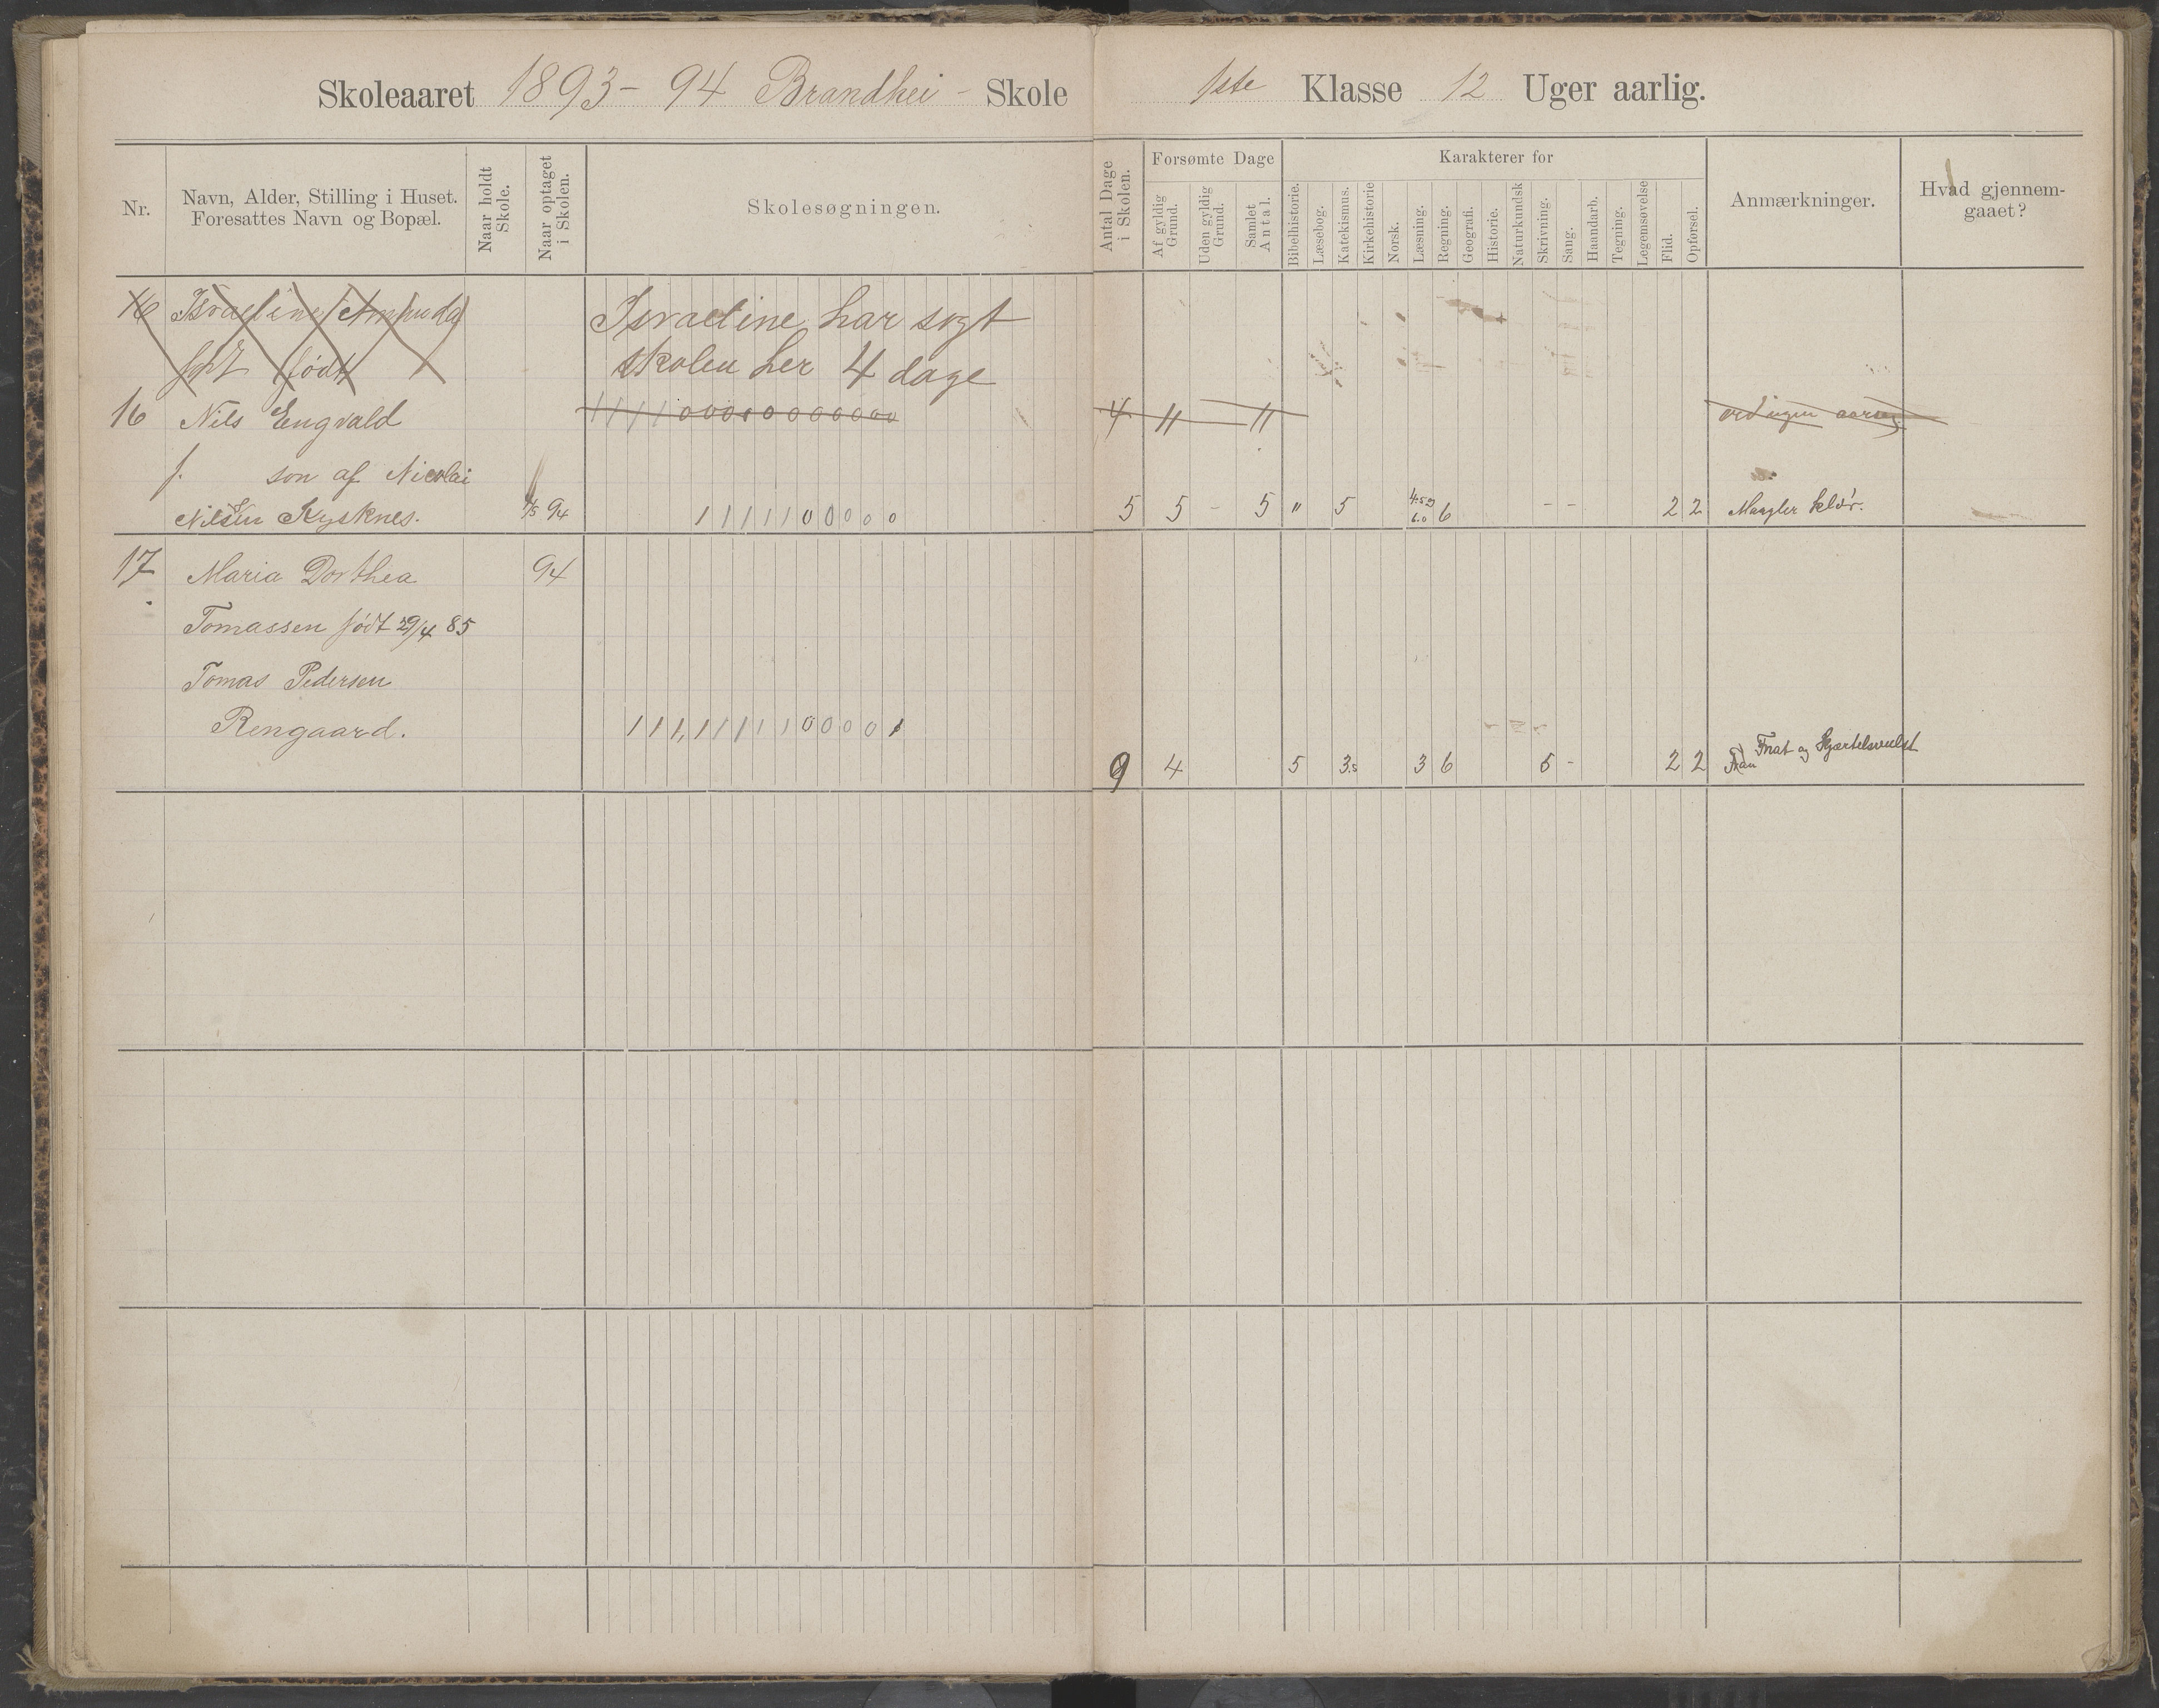 Skoleaaret 1893-94 Brandhei - Skole
1ste Klasse 12 Uger aarlig.
Nr.
Navn, Alder, Stilling i Huset.
Foresattes Navn og Bopæl.
Naar holdt
Skole.
Naar optaget
i Skolen.
Skolesøgningen.
Antal Dage
i Skolen.
Forsømte Dage
Af gyldig
Grund.
Uden gyldig
Grund.
Samlet
Antal.
Karakterer for
Bibelhistorie.
Læsebog.
Katekismus.
Kirkehistorie
Norsk.
Læsning.
Regning.
Geografi.
Historie.
Naturkundsk
Skrivning.
Sang.
Haandarb.
Tegning.
Legemsøvelse
Flid.
Opførsel.
Anmærkninger.
Hvad gjennem-
gaaet?
16 Israeline
født
Israeline har søgt
skolen her 4 dage
16 Nils Engvald
1 1 1 1 0 0 0 0 0 0 0 0 0 0 0
4 11 — 11
f. son af Nicolai
Nilsen Kysknes.
4/5 94
1 1 1 1 1 0 0 0 0 0
5 5 - 5 " 5 6 - - 2 2 Mangler klæ'r.
17 Maria Dorthea 94
Tomassen født 29/4 85
Tomas Pedersen
Rengaard.
1 1 1, 1 1 1 1 1 0 0 0 0 1
9 4 5 3.5 3 6 5 - 2 2
Fnat og Kjertelsvulst